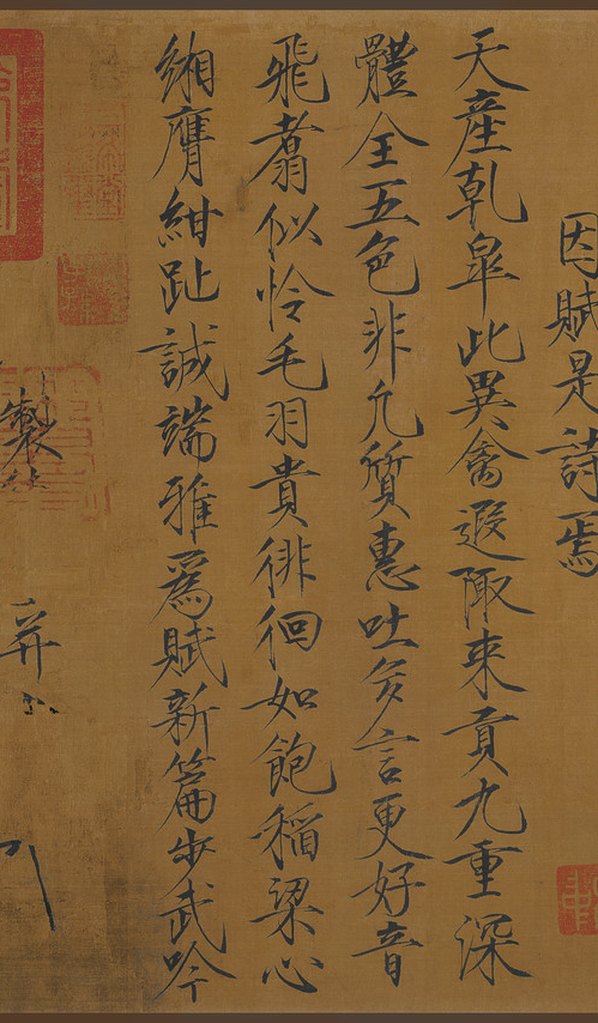 因賦是詩焉
天產乾皐此異禽遐陬来貢九重深
體全五色非凡質惠吐多言更好音
飛翥似怜毛羽貴徘徊如飽稻粱心
緗膺紺趾誠端雅爲賦新篇步武吟
製
并